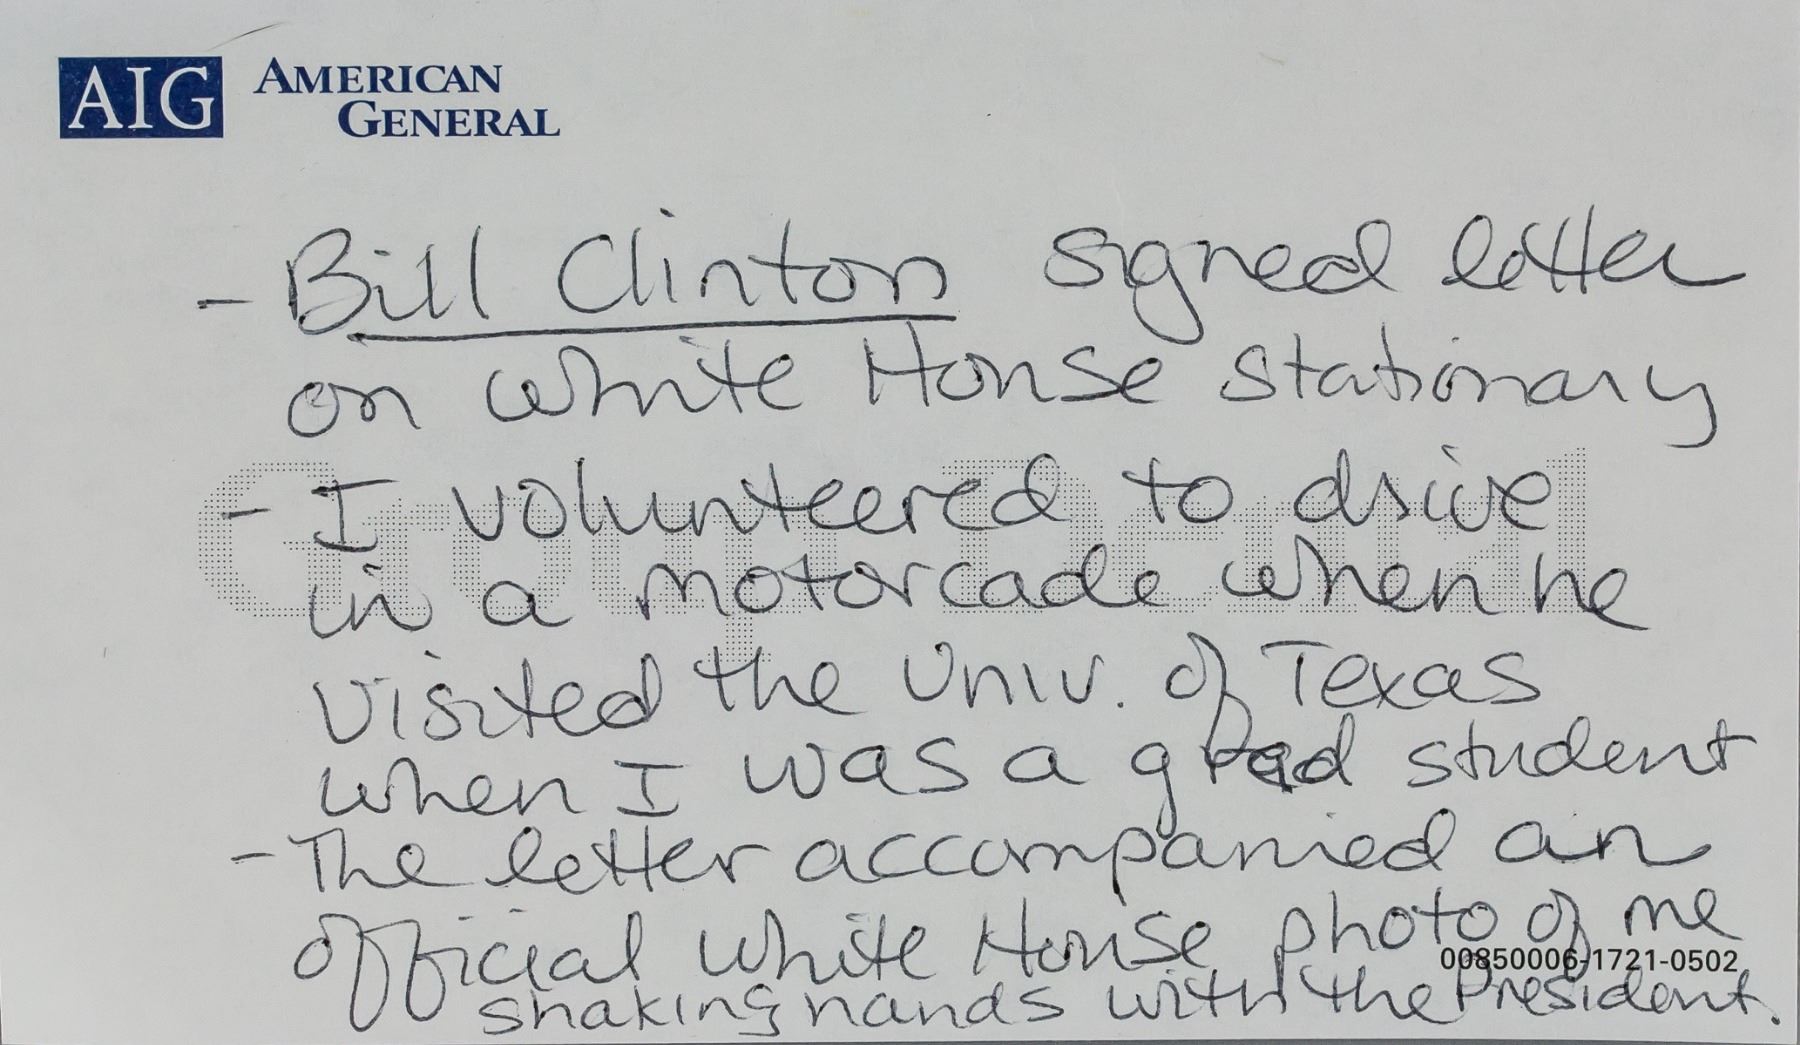 AIG AMERICAN
GENERAL
- Bill Clinton signed letter
on White House stationary
- I volunteered to drive
in a motorcade when he
visited the Univ. of Texas
when I was a grad student
- The letter accompanied an
official White House photo of me
00850006-1721-0502
shaking hands with the President.